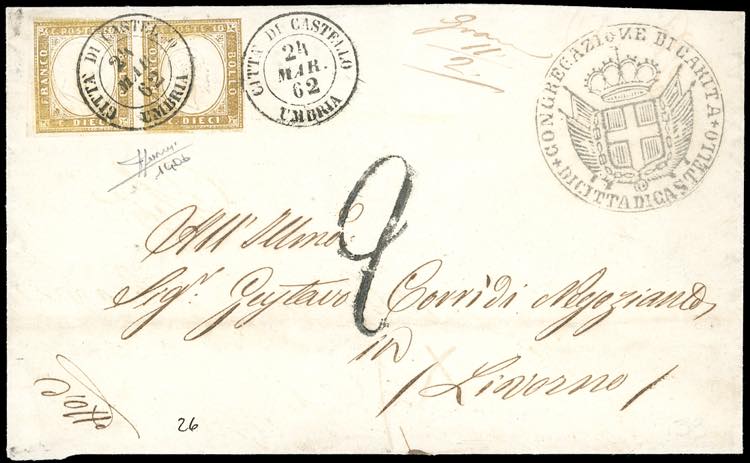 FRANCO C. POSTE 10 BOLLO
C. DIECI C. DIECI
CITTÀ DI CASTELLO
24
MAR.
62
UMBRIA
CITTÀ DI CASTELLO
24
MAR.
62
UMBRIA
11
2
CONGREGAZIONE DI CARITA
DI CITTA DI CASTELLO
1406
2
All' Illmo
Sigr. Gustavo Corridi Negoziante
in
Livorno
26